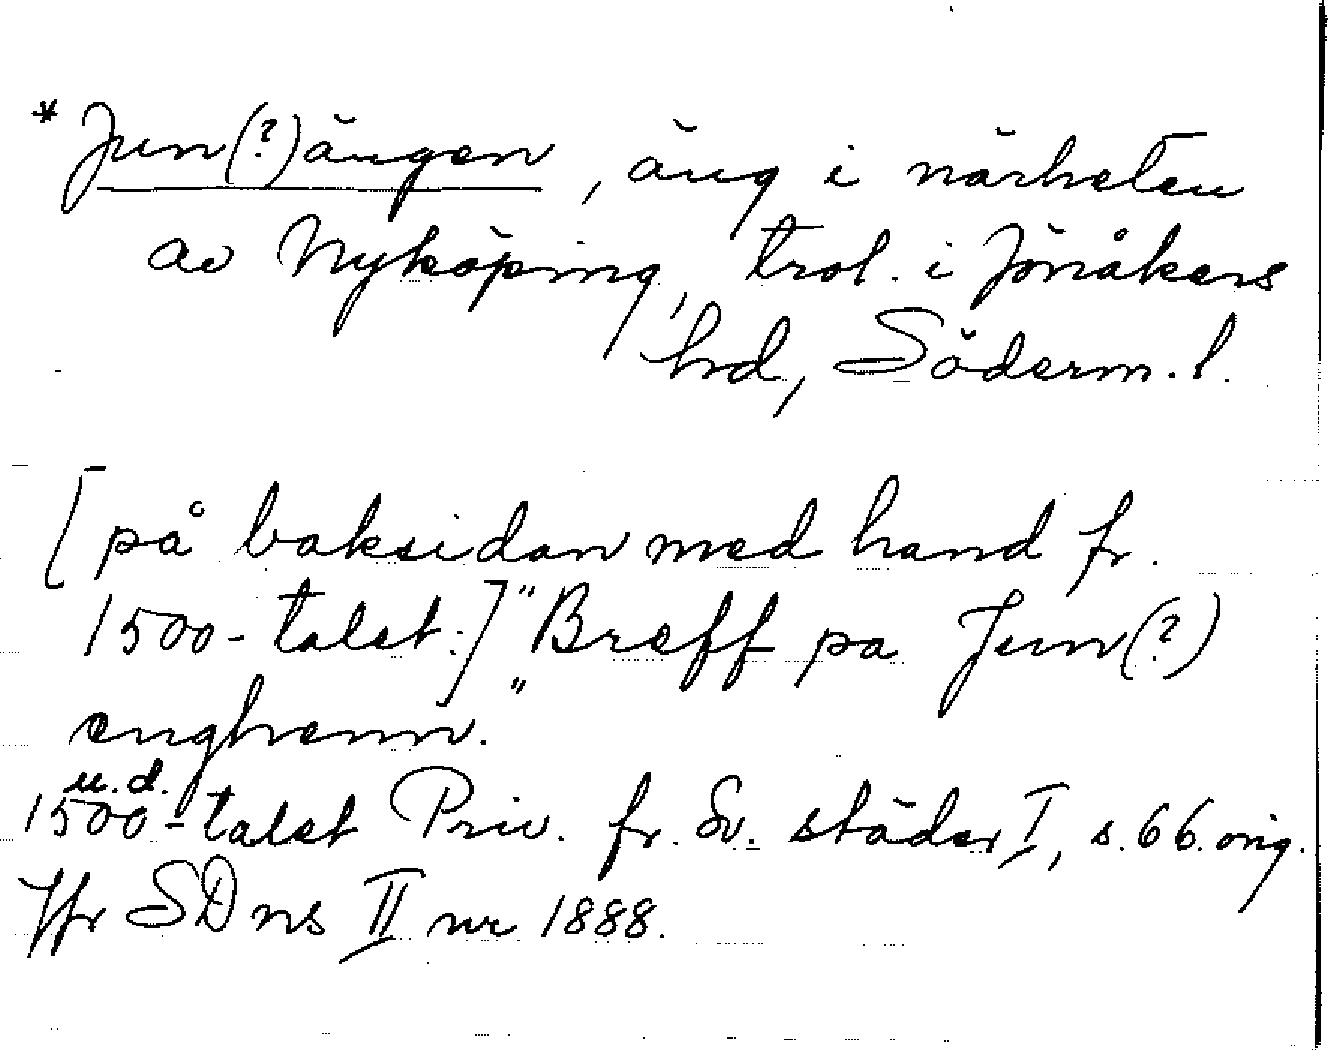 * Jun(?)ängen, äng i närheten
av Nyköping, trol. i Jönåkers
hd, Söderm. l.
[på baksidan med hand fr.
1500-talet:] "Breff pa Jun(?)
enghenn."
u.d.
1500-talet Priv. fr. Sv. städer I, s. 66. orig.
Jfr SD ns II nr 1888.